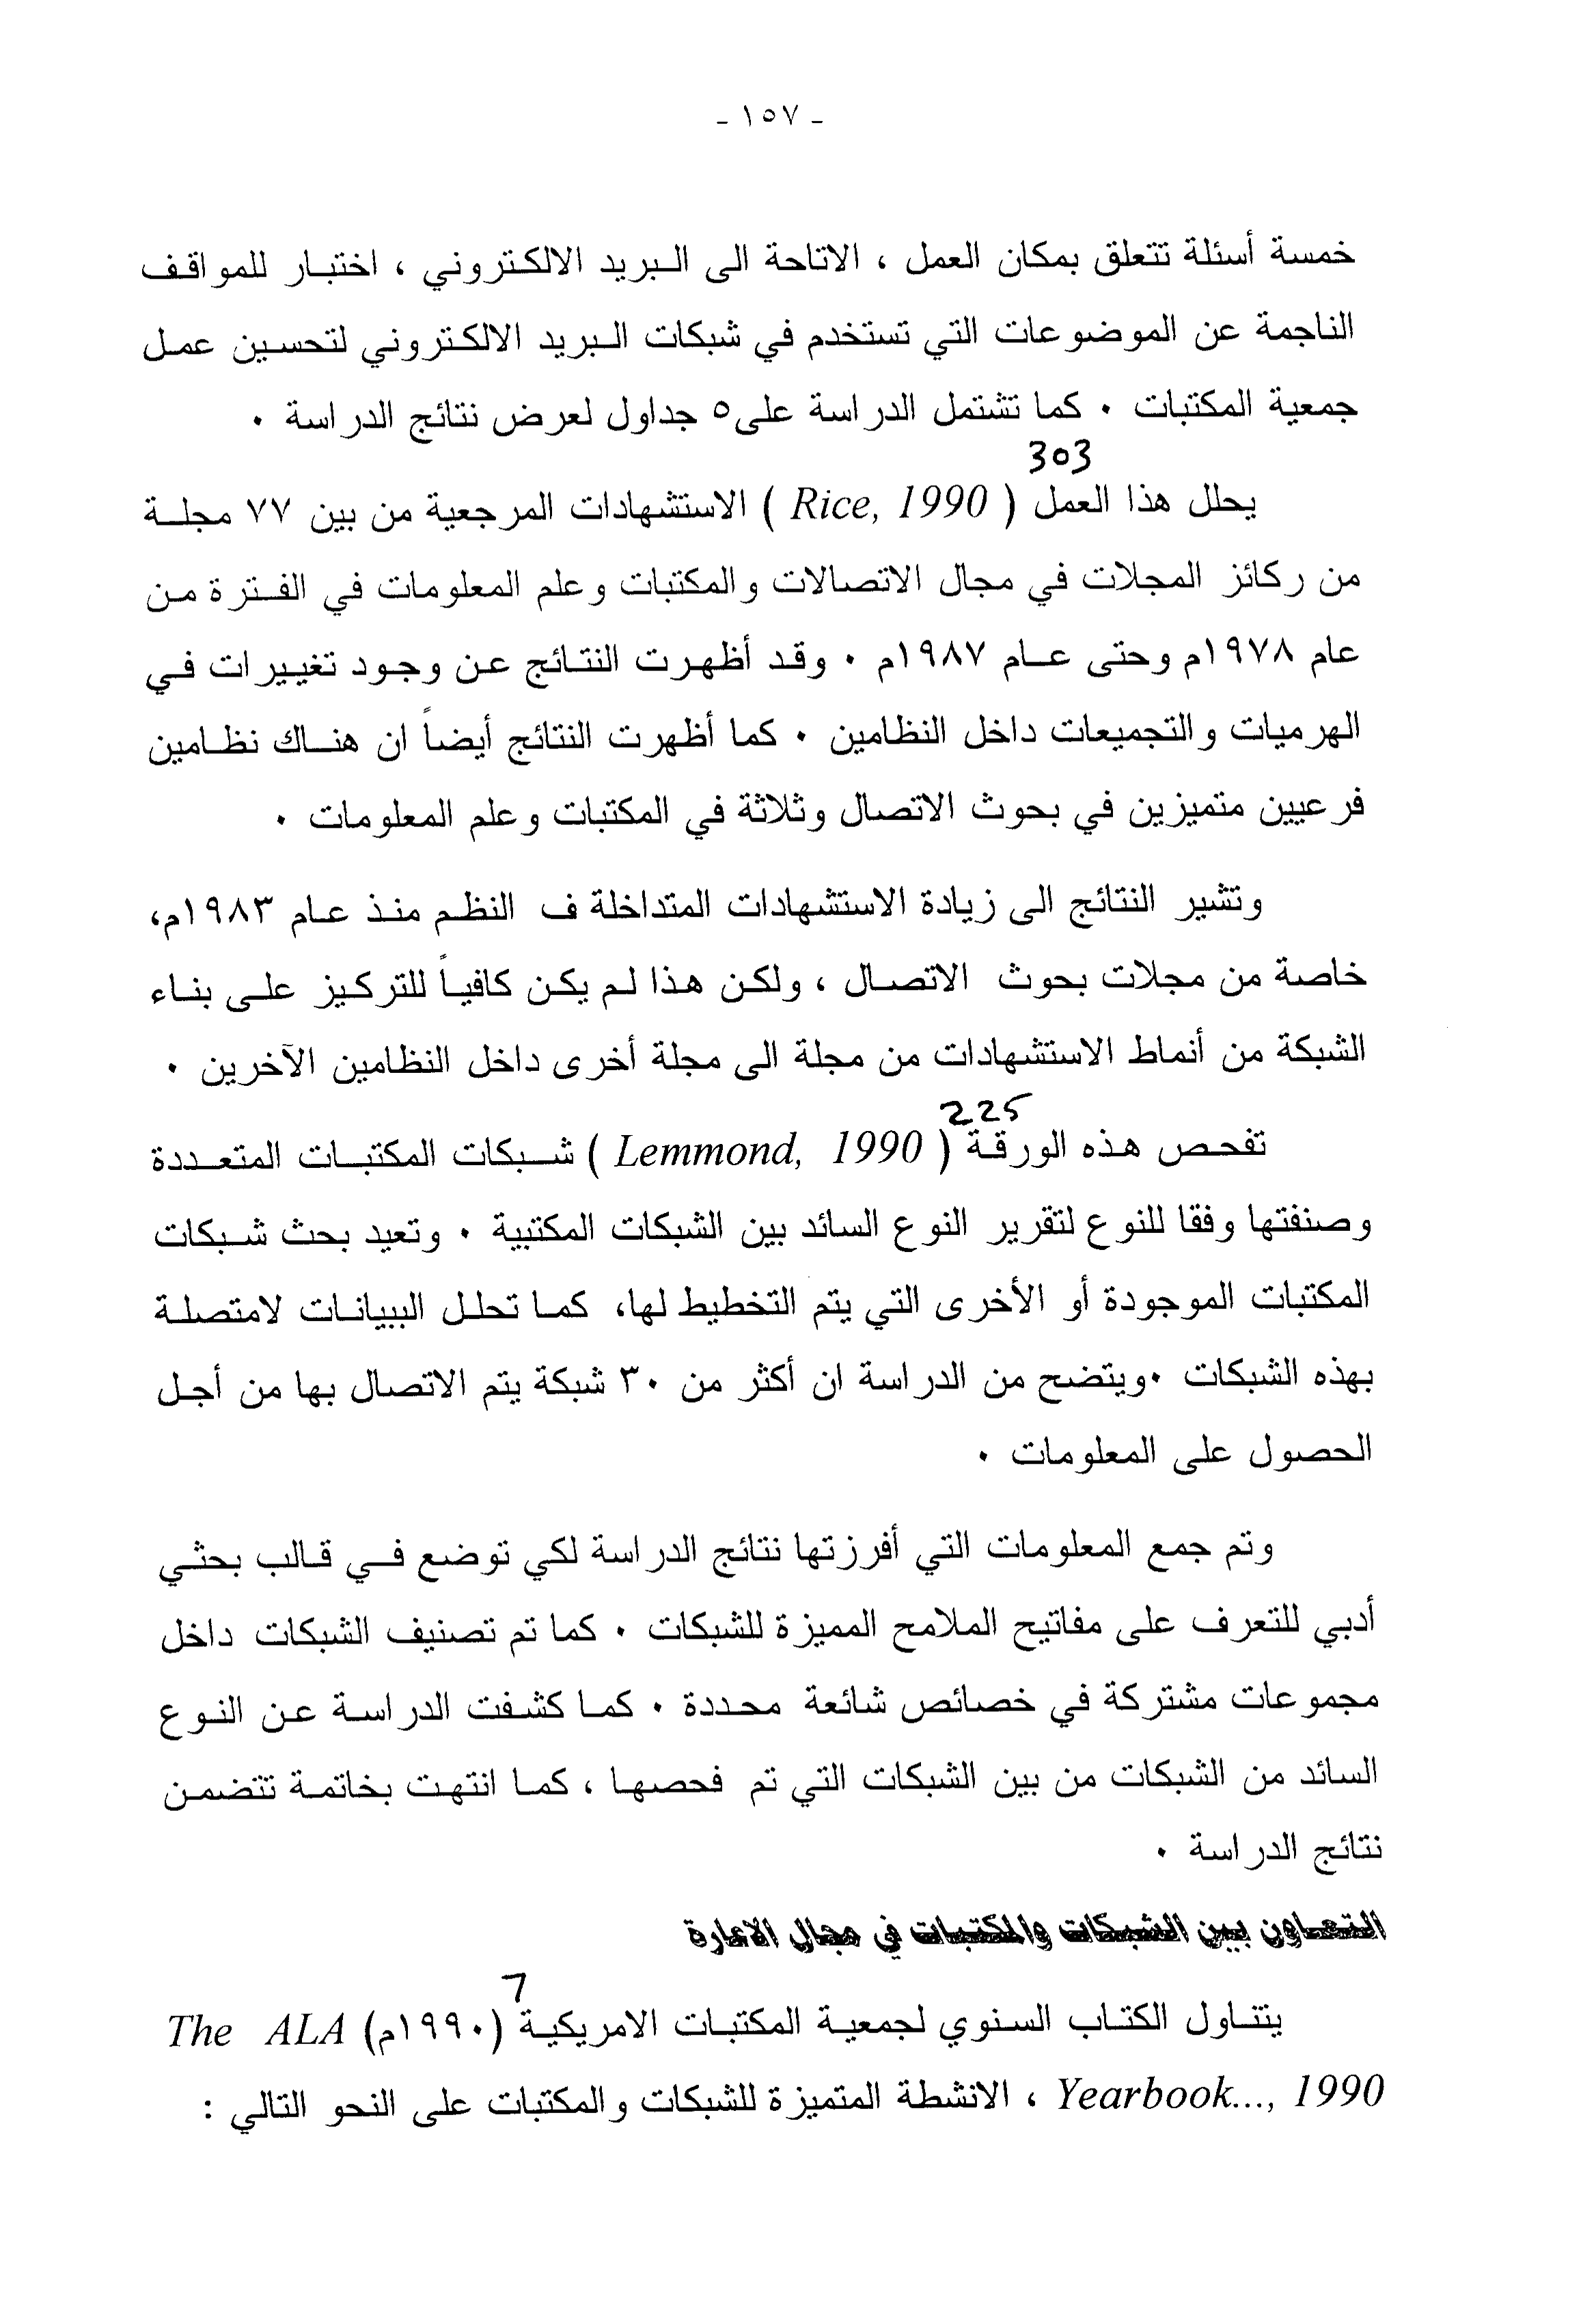 - ١٥٧ -
خمسة أسئلة تتعلق بمكان العمل ، الاتاحة الى البريد الالكتروني ، اختبار للمواقف
الناجمة عن الموضوعات التي تستخدم في شبكات البريد الالكتروني لتحسين عمل
جمعية المكتبات ٠ كما تشتمل الدراسة على ٥ جداول لعرض نتائج الدراسة ٠
303
يحلل هذا العمل ( Rice, 1990 ) الاستشهادات المرجعية من بين ٧٧ مجلة
من ركائز المجلات في مجال الاتصالات والمكتبات وعلم المعلومات في الفترة من
عام ١٩٧٨م وحتى عام ١٩٨٧م ٠ وقد أظهرت النتائج عن وجود تغييرات في
الهرميات والتجميعات داخل النظامين ٠ كما أظهرت النتائج أيضاً ان هناك نظامين
فرعيين متميزين في بحوث الاتصال وثلاثة في المكتبات وعلم المعلومات ٠
وتشير النتائج الى زيادة الاستشهادات المتداخلة ف النظم منذ عام ١٩٨٣م،
خاصة من مجلات بحوث الاتصال ، ولكن هذا لم يكن كافياً للتركيز على بناء
الشبكة من أنماط الاستشهادات من مجلة الى مجلة أخرى داخل النظامين الآخرين ٠
225
تفحص هذه الورقة ( Lemmond, 1990 ) شبكات المكتبات المتعددة
وصنفتها وفقا للنوع لتقرير النوع السائد بين الشبكات المكتبية ٠ وتعيد بحث شبكات
المكتبات الموجودة أو الأخرى التي يتم التخطيط لها، كما تحلل الببيانات لامتصلة
بهذه الشبكات ٠ويتضح من الدراسة ان أكثر من ٣٠ شبكة يتم الاتصال بها من أجل
الحصول على المعلومات ٠
وتم جمع المعلومات التي أفرزتها نتائج الدراسة لكي توضع في قالب بحثي
أدبي للتعرف على مفاتيح الملامح المميزة للشبكات ٠ كما تم تصنيف الشبكات داخل
مجموعات مشتركة في خصائص شائعة محددة ٠ كما كشفت الدراسة عن النوع
السائد من الشبكات من بين الشبكات التي تم فحصها ، كما انتهت بخاتمة تتضمن
نتائج الدراسة ٠
التعاون بين الشبكات والمكتبات في مجال الاعارة
7
يتناول الكتاب السنوي لجمعية المكتبات الامريكية (١٩٩٠م) The ALA
Yearbook..., 1990 ، الانشطة المتميزة للشبكات والمكتبات على النحو التالي :